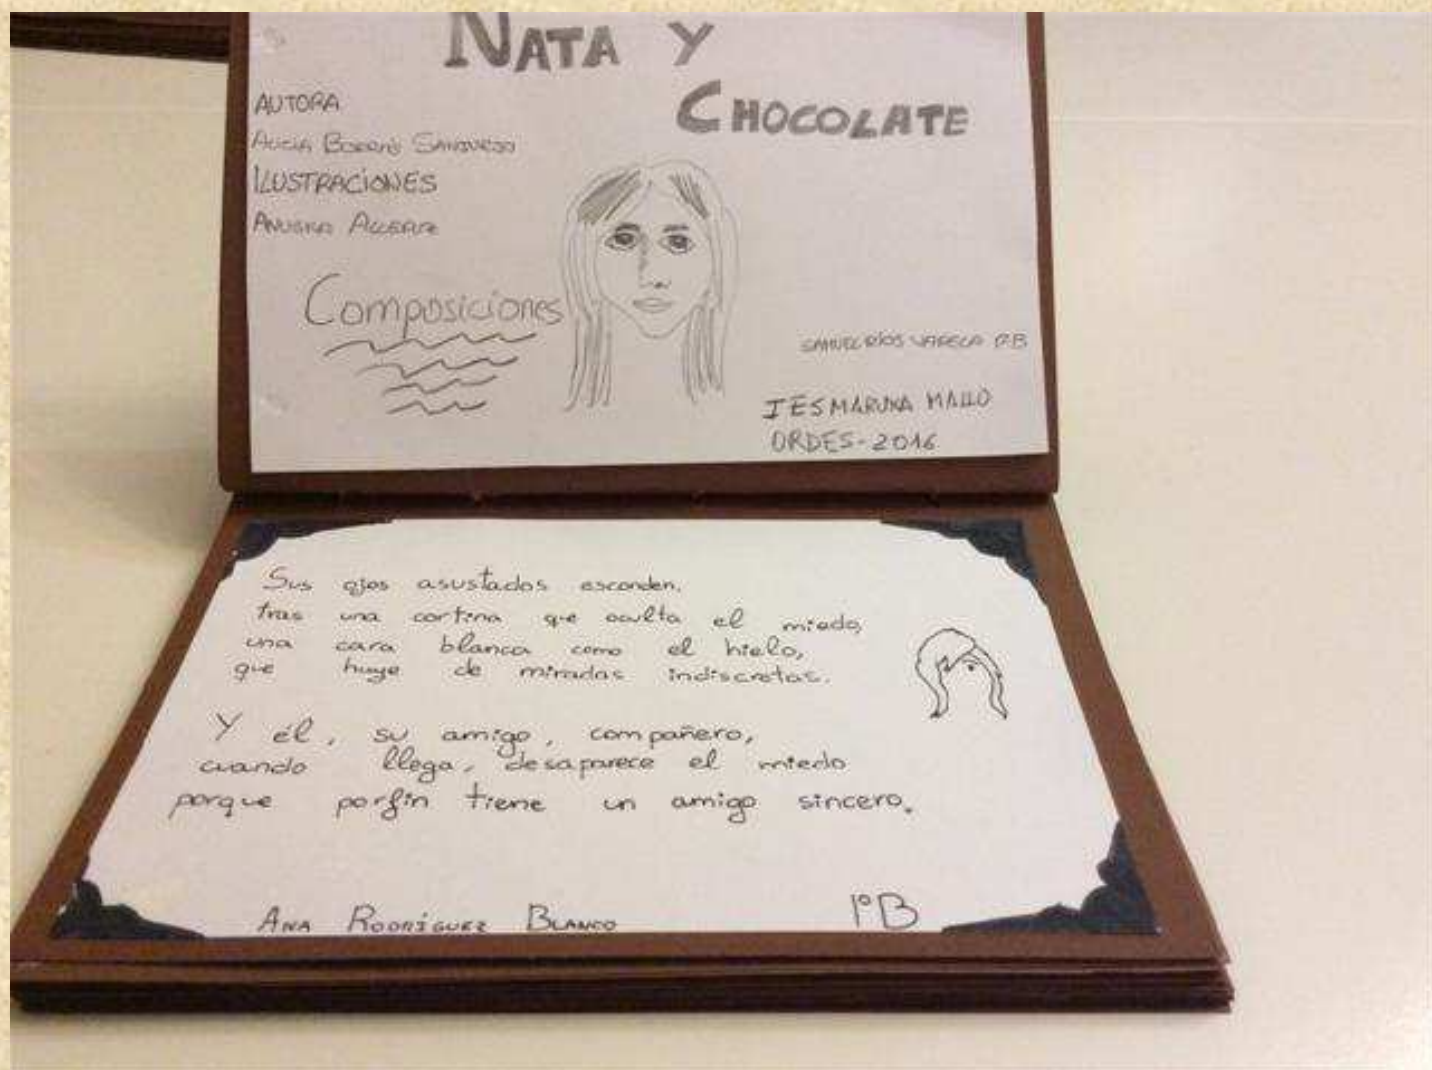 NATA Y
CHOCOLATE
AUTORA
ALICIA BORRÁS SANJURJO
ILUSTRACIONES
ANUSKA ALLEPUZ
Composiciones
SAMUEL RÍOS VARELA 1ºB
IES MARUXA MALLO
ORDES-2016
Sus ojos asustados esconden,
tras una cortina que oculta el miedo,
una cara blanca como el hielo,
que huye de miradas indiscretas.
Y él, su amigo, compañero,
cuando llega, desaparece el miedo
porque porfin tiene un amigo sincero.
ANA RODRÍGUEZ BLANCO 1ºB